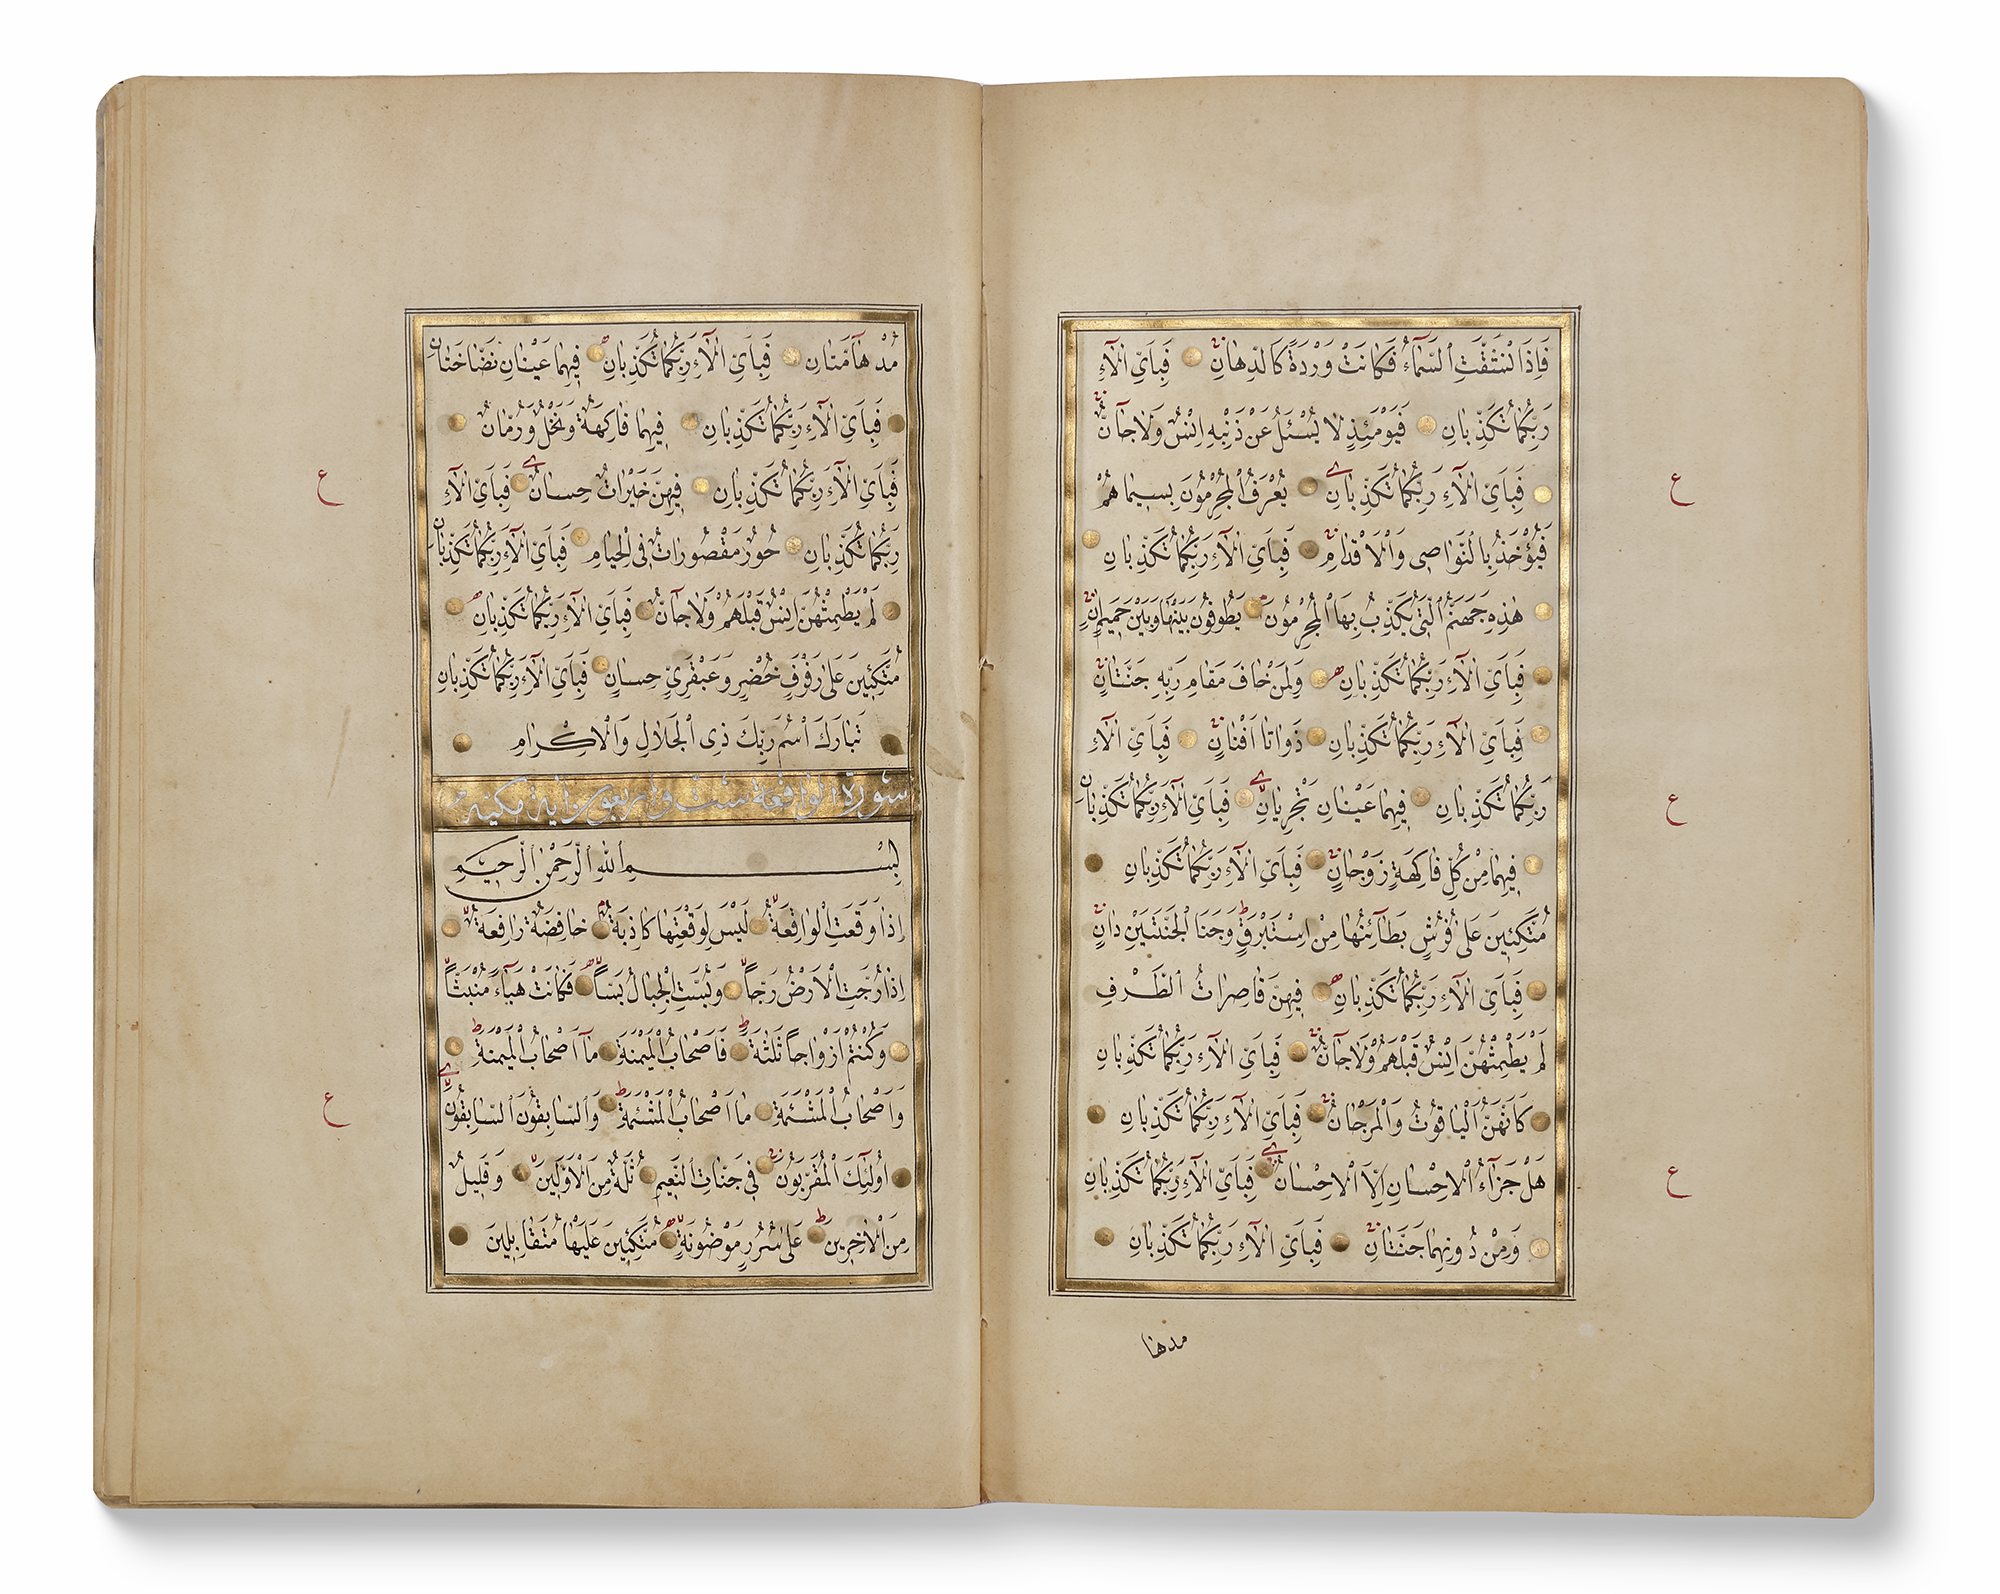 فَاِذَا انْشَقَّتِ السَّمَٓاءُ فَكَانَتْ وَرْدَةً كَالدِّهَانِ فَبِاَىِّ اٰلَٓاءِ
رَبِّكُمَا تُكَذِّبَانِ فَيَوْمَئِذٍ لَا يُسْئَلُ عَنْ ذَنْبِهِ اِنْسٌ وَلَا جَٓانٌّ
فَبِاَىِّ اٰلَٓاءِ رَبِّكُمَا تُكَذِّبَانِ يُعْرَفُ الْمُجْرِمُونَ بِسِيمَاهُمْ
ع
فَيُؤْخَذُ بِالنَّوَاصِى وَالْاَقْدَامِ فَبِاَىِّ اٰلَٓاءِ رَبِّكُمَا تُكَذِّبَانِ
هٰذِهِ جَهَنَّمُ الَّتِى يُكَذِّبُ بِهَا الْمُجْرِمُونَ يَطُوفُونَ بَيْنَهَا وَبَيْنَ حَمِيمٍ اٰنٍ
فَبِاَىِّ اٰلَٓاءِ رَبِّكُمَا تُكَذِّبَانِ وَلِمَنْ خَافَ مَقَامَ رَبِّهِ جَنَّتَانِ
فَبِاَىِّ اٰلَٓاءِ رَبِّكُمَا تُكَذِّبَانِ ذَوَاتَا اَفْنَانٍ فَبِاَىِّ اٰلَٓاءِ
رَبِّكُمَا تُكَذِّبَانِ فِيهِمَا عَيْنَانِ تَجْرِيَانِ فَبِاَىِّ اٰلَٓاءِ رَبِّكُمَا تُكَذِّبَانِ
ع
فِيهِمَا مِنْ كُلِّ فَاكِهَةٍ زَوْجَانِ فَبِاَىِّ اٰلَٓاءِ رَبِّكُمَا تُكَذِّبَانِ
مُتَّكِئِينَ عَلٰى فُرُشٍ بَطَٓائِنُهَا مِنْ اِسْتَبْرَقٍ وَجَنَا الْجَنَّتَيْنِ دَانٍ
فَبِاَىِّ اٰلَٓاءِ رَبِّكُمَا تُكَذِّبَانِ فِيهِنَّ قَاصِرَاتُ الطَّرْفِ
لَمْ يَطْمِثْهُنَّ اِنْسٌ قَبْلَهُمْ وَلَا جَٓانٌّ فَبِاَىِّ اٰلَٓاءِ رَبِّكُمَا تُكَذِّبَانِ
كَاَنَّهُنَّ الْيَاقُوتُ وَالْمَرْجَانُ فَبِاَىِّ اٰلَٓاءِ رَبِّكُمَا تُكَذِّبَانِ
هَلْ جَزَٓاءُ الْاِحْسَانِ اِلَّا الْاِحْسَانُ فَبِاَىِّ اٰلَٓاءِ رَبِّكُمَا تُكَذِّبَانِ
ع
وَمِنْ دُونِهِمَا جَنَّتَانِ فَبِاَىِّ اٰلَٓاءِ رَبِّكُمَا تُكَذِّبَانِ
مدها
مُدْهَٓامَّتَانِ فَبِاَىِّ اٰلَٓاءِ رَبِّكُمَا تُكَذِّبَانِ فِيهِمَا عَيْنَانِ نَضَّاخَتَانِ
فَبِاَىِّ اٰلَٓاءِ رَبِّكُمَا تُكَذِّبَانِ فِيهِمَا فَاكِهَةٌ وَنَخْلٌ وَرُمَّانٌ
فَبِاَىِّ اٰلَٓاءِ رَبِّكُمَا تُكَذِّبَانِ فِيهِنَّ خَيْرَاتٌ حِسَانٌ فَبِاَىِّ اٰلَٓاءِ
ع
رَبِّكُمَا تُكَذِّبَانِ حُورٌ مَقْصُورَاتٌ فِى الْخِيَامِ فَبِاَىِّ اٰلَٓاءِ رَبِّكُمَا تُكَذِّبَانِ
لَمْ يَطْمِثْهُنَّ اِنْسٌ قَبْلَهُمْ وَلَا جَٓانٌّ فَبِاَىِّ اٰلَٓاءِ رَبِّكُمَا تُكَذِّبَانِ
مُتَّكِئِينَ عَلٰى رَفْرَفٍ خُضْرٍ وَعَبْقَرِىٍّ حِسَانٍ فَبِاَىِّ اٰلَٓاءِ رَبِّكُمَا تُكَذِّبَانِ
تَبَارَكَ اسْمُ رَبِّكَ ذِى الْجَلَالِ وَالْاِكْرَامِ
سورة الواقعة ست واربعون اية مكيه
بِسْمِ اللّٰهِ الرَّحْمٰنِ الرَّحِيمِ
اِذَا وَقَعَتِ الْوَاقِعَةُ لَيْسَ لِوَقْعَتِهَا كَاذِبَةٌ خَافِضَةٌ رَافِعَةٌ
اِذَا رُجَّتِ الْاَرْضُ رَجًّا وَبُسَّتِ الْجِبَالُ بَسًّا فَكَانَتْ هَبَٓاءً مُنْبَثًّا
وَكُنْتُمْ اَزْوَاجًا ثَلٰثَةً فَاَصْحَابُ الْمَيْمَنَةِ مَٓا اَصْحَابُ الْمَيْمَنَةِ
وَاَصْحَابُ الْمَشْئَمَةِ مَٓا اَصْحَابُ الْمَشْئَمَةِ وَالسَّابِقُونَ السَّابِقُونَ
ع
اُولٰٓئِكَ الْمُقَرَّبُونَ فِى جَنَّاتِ النَّعِيمِ ثُلَّةٌ مِنَ الْاَوَّلِينَ وَقَلِيلٌ
مِنَ الْاٰخِرِينَ عَلٰى سُرُرٍ مَوْضُونَةٍ مُتَّكِئِينَ عَلَيْهَا مُتَقَابِلِينَ